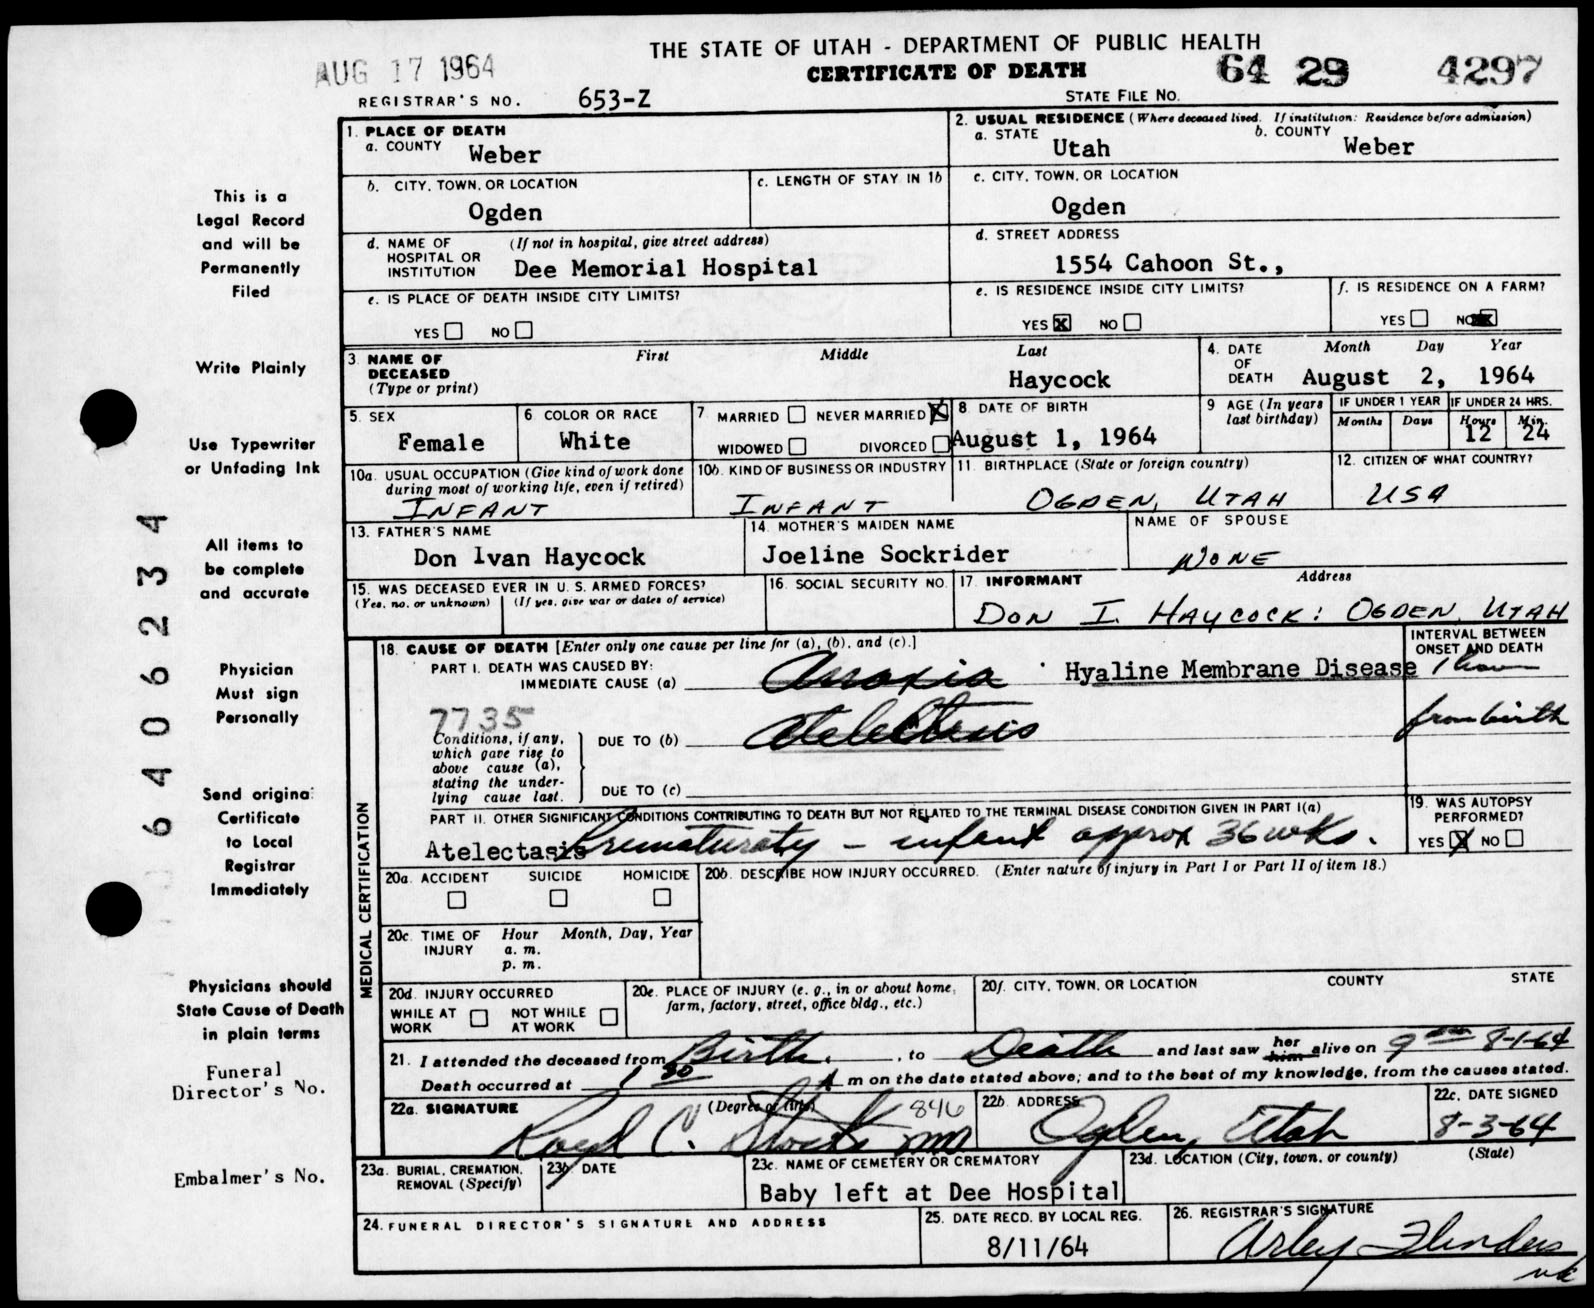 THE STATE OF UTAH - DEPARTMENT OF PUBLIC HEALTH
AUG 17 1964
CERTIFICATE OF DEATH
64 29 4297
REGISTRAR'S NO. 653-Z
STATE FILE NO.
This is a
Legal Record
and will be
Permanently
Filed
Write Plainly
Use Typewriter
or Unfading Ink
All items to
be complete
and accurate
Physician
Must sign
Personally
Send origina
Certificate
to Local
Registrar
Immediately
Physicians should
State Cause of Death
in plain terms
Funeral
Director's No.
Embalmer's No.
64 0 6 2 3 4
1. PLACE OF DEATH
a. COUNTY Weber
2. USUAL RESIDENCE (Where deceased lived. If institution: Residence before admission)
a. STATE Utah
b. COUNTY Weber
b. CITY, TOWN, OR LOCATION
Ogden
c. LENGTH OF STAY IN 1b
c. CITY, TOWN, OR LOCATION
Ogden
d. NAME OF HOSPITAL OR INSTITUTION (If not in hospital, give street address)
Dee Memorial Hospital
d. STREET ADDRESS
1554 Cahoon St.,
e. IS PLACE OF DEATH INSIDE CITY LIMITS?
YES NO
e. IS RESIDENCE INSIDE CITY LIMITS?
YES X NO
f. IS RESIDENCE ON A FARM?
YES NO X
3. NAME OF DECEASED (Type or print)
First Middle Last
Haycock
4. DATE OF DEATH
Month Day Year
August 2, 1964
5. SEX
Female
6 COLOR OR RACE
White
7 MARRIED NEVER MARRIED X
WIDOWED DIVORCED
8 DATE OF BIRTH
August 1, 1964
9 AGE (In years last birthday)
IF UNDER 1 YEAR
Months Days
IF UNDER 24 HRS.
Hours Min.
12 24
10a. USUAL OCCUPATION (Give kind of work done during most of working life, even if retired)
INFANT
10b. KIND OF BUSINESS OR INDUSTRY
INFANT
11. BIRTHPLACE (State or foreign country)
OGDEN, UTAH
12. CITIZEN OF WHAT COUNTRY?
USA
13. FATHER'S NAME
Don Ivan Haycock
14. MOTHER'S MAIDEN NAME
Joeline Sockrider
NAME OF SPOUSE
NONE
15. WAS DECEASED EVER IN U. S. ARMED FORCES?
(Yes, no, or unknown) (If yes, give war or dates of service)
16. SOCIAL SECURITY NO.
17. INFORMANT Address
DON I. HAYCOCK: OGDEN, UTAH
MEDICAL CERTIFICATION
18. CAUSE OF DEATH [Enter only one cause per line for (a), (b), and (c).]
INTERVAL BETWEEN ONSET AND DEATH
PART I. DEATH WAS CAUSED BY:
IMMEDIATE CAUSE (a) Anoxia Hyaline Membrane Disease 1 hour
7735
Conditions, if any, which gave rise to above cause (a), stating the underlying cause last.
DUE TO (b) Atelectasis from birth
DUE TO (c)
PART II. OTHER SIGNIFICANT CONDITIONS CONTRIBUTING TO DEATH BUT NOT RELATED TO THE TERMINAL DISEASE CONDITION GIVEN IN PART I(a)
Atelectasis Prematurity - infant approx 36 wks.
19. WAS AUTOPSY PERFORMED?
YES X NO
20a. ACCIDENT SUICIDE HOMICIDE
20b. DESCRIBE HOW INJURY OCCURRED. (Enter nature of injury in Part I or Part II of item 18.)
20c. TIME OF INJURY
Hour Month, Day, Year
a. m.
p. m.
20d. INJURY OCCURRED
WHILE AT WORK NOT WHILE AT WORK
20e. PLACE OF INJURY (e. g., in or about home, farm, factory, street, office bldg., etc.)
20f. CITY, TOWN, OR LOCATION COUNTY STATE
21. I attended the deceased from Birth, to Death and last saw her him alive on 9 8-1-64
Death occurred at 1 30 A m on the date stated above; and to the best of my knowledge, from the causes stated.
22a. SIGNATURE (Degree or title) 846
Loyd C. MD
22b. ADDRESS
Ogden, Utah
22c. DATE SIGNED
8-3-64
23a. BURIAL, CREMATION, REMOVAL (Specify)
23b DATE
23c. NAME OF CEMETERY OR CREMATORY
Baby left at Dee Hospital
23d. LOCATION (City, town, or county) (State)
24. FUNERAL DIRECTOR'S SIGNATURE AND ADDRESS
25. DATE RECD. BY LOCAL REG.
8/11/64
26. REGISTRAR'S SIGNATURE
Arley Flinders